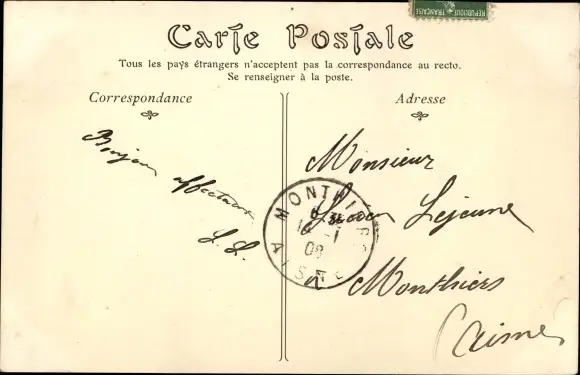 RÉPUBLIQUE FRANÇAISE
Carte Postale
Tous les pays étrangers n'acceptent pas la correspondance au recto.
Se renseigner à la poste.
Correspondance
Bonjour affectueux
L. L.
Adresse
Monsieur
Lucien Lejeune
Monthiers
Aisne
MONTHIERS
08
AISNE